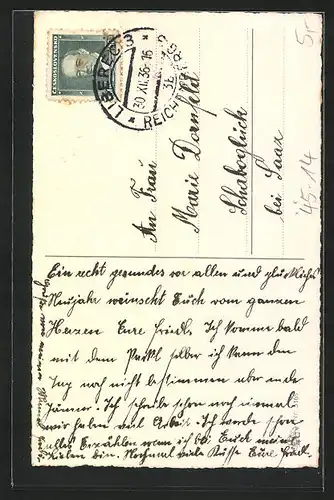 ČESKOSLOVENSKO
LIBEREC 3
30.XII.36-16
REICHENBERG
5.-
45-14
An Frau
Marie Dornfeld
Schaboglück
bei Saaz
Ein recht gesundes vor allen und glückliches
Neujahr wünscht Euch vom ganzen
Herzen Eure Friedl. Ich komme bald
mit dem Packl selber ich kann den
Tag noch nicht bestimmen aber ende
Jänner. Ich schreibe schon noch einmal
wir haben viel Arbeit. Ich werde schon
alles Erzählen wenn ich bei Euch meine
Lieben bin. Nochmal viele Küsse Eure Friedl.